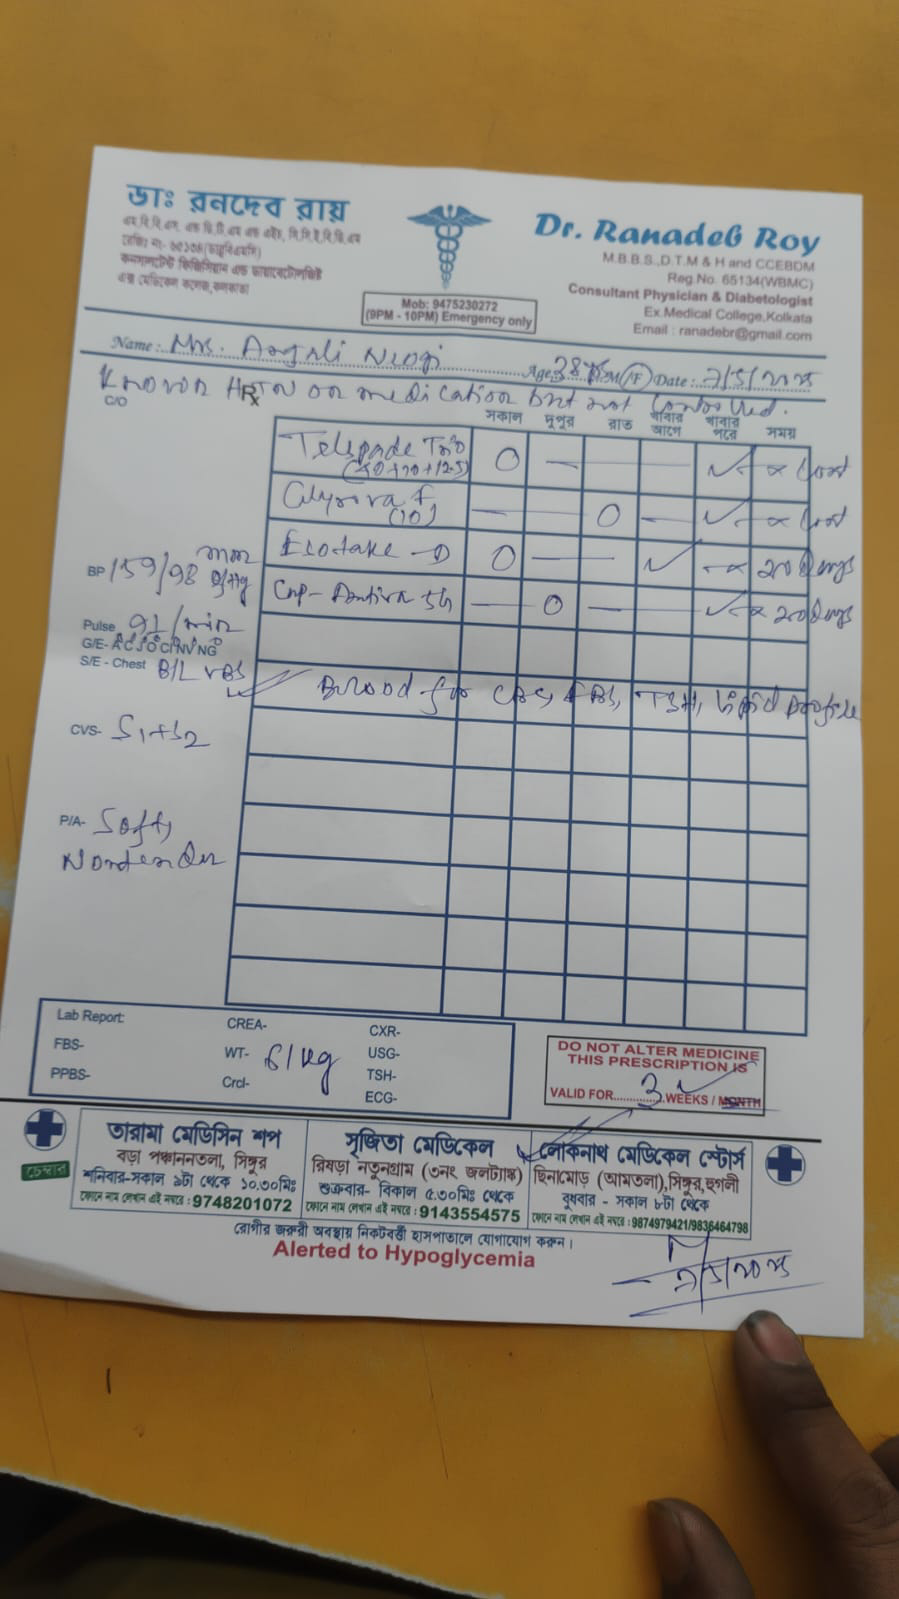 ডাঃ রনদেব রায়
Dr. Ranadeb Roy
M.B.B.S.,D.T.M & H and CCEBDM
Reg.No. 65134(WBMC)
Consultant Physician & Diabetologist
Ex.Medical College,Kolkata
Email : ranadebr@gmail.com
Mob: 9475230272
(9PM - 10PM) Emergency only
Name : Mrs. Anjali Neogi Age 38 M/F Date : 7/5/2025
Known HTN on medication but not controlled.
C/O
Rx
সকাল দুপুর রাত খাবার আগে খাবার পরে সময়
Trio
(40+10+12.5)
(10)
D
20 Days
Cap-
20 Days
BP 159/98 mm of Hg
Pulse 91/min
G/E- A C J O C N V NG
S/E - Chest B/L VBS
Blood for CBC, FBS, TSH, Lipid Profile
CVS- S1+S2
P/A- Soft,
Nontender
Lab Report:
FBS-
PPBS-
CREA-
WT- 61 kg
Crcl-
CXR-
USG-
TSH-
ECG-
DO NOT ALTER MEDICINE
THIS PRESCRIPTION IS
VALID FOR 3 WEEKS / MONTH
চেম্বার
তারামা মেডিসিন শপ
বড়া পঞ্চাননতলা, সিঙ্গুর
শনিবার-সকাল ৯টা থেকে ১০.৩০মিঃ
ফোনে নাম লেখান এই নম্বরে : 9748201072
সৃজিতা মেডিকেল
রিষড়া নতুনগ্রাম (৩নং জলট্যাঙ্ক)
শুক্রবার- বিকাল ৫.৩০মিঃ থেকে
ফোনে নাম লেখান এই নম্বরে : 9143554575
লোকনাথ মেডিকেল স্টোর্স
ছিনামোড় (আমতলা),সিঙ্গুর,হুগলী
বুধবার - সকাল ৮টা থেকে
ফোনে নাম লেখান এই নম্বরে : 9874979421/9836464798
রোগীর জরুরী অবস্থায় নিকটবর্ত্তী হাসপাতালে যোগাযোগ করুন।
Alerted to Hypoglycemia
7/5/2025